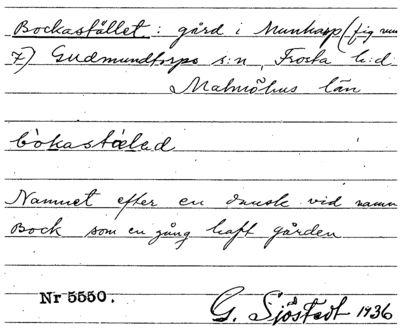 Bockastället : gård i Munkarp (fig num
7) Gudmundtorps s:n, Frosta h:d
Malmöhus län
bòkastæ̀led
Namnet efter en dansk vid namn
Bock som en gång haft gården
Nr 5550.
G. Sjöstedt 1936